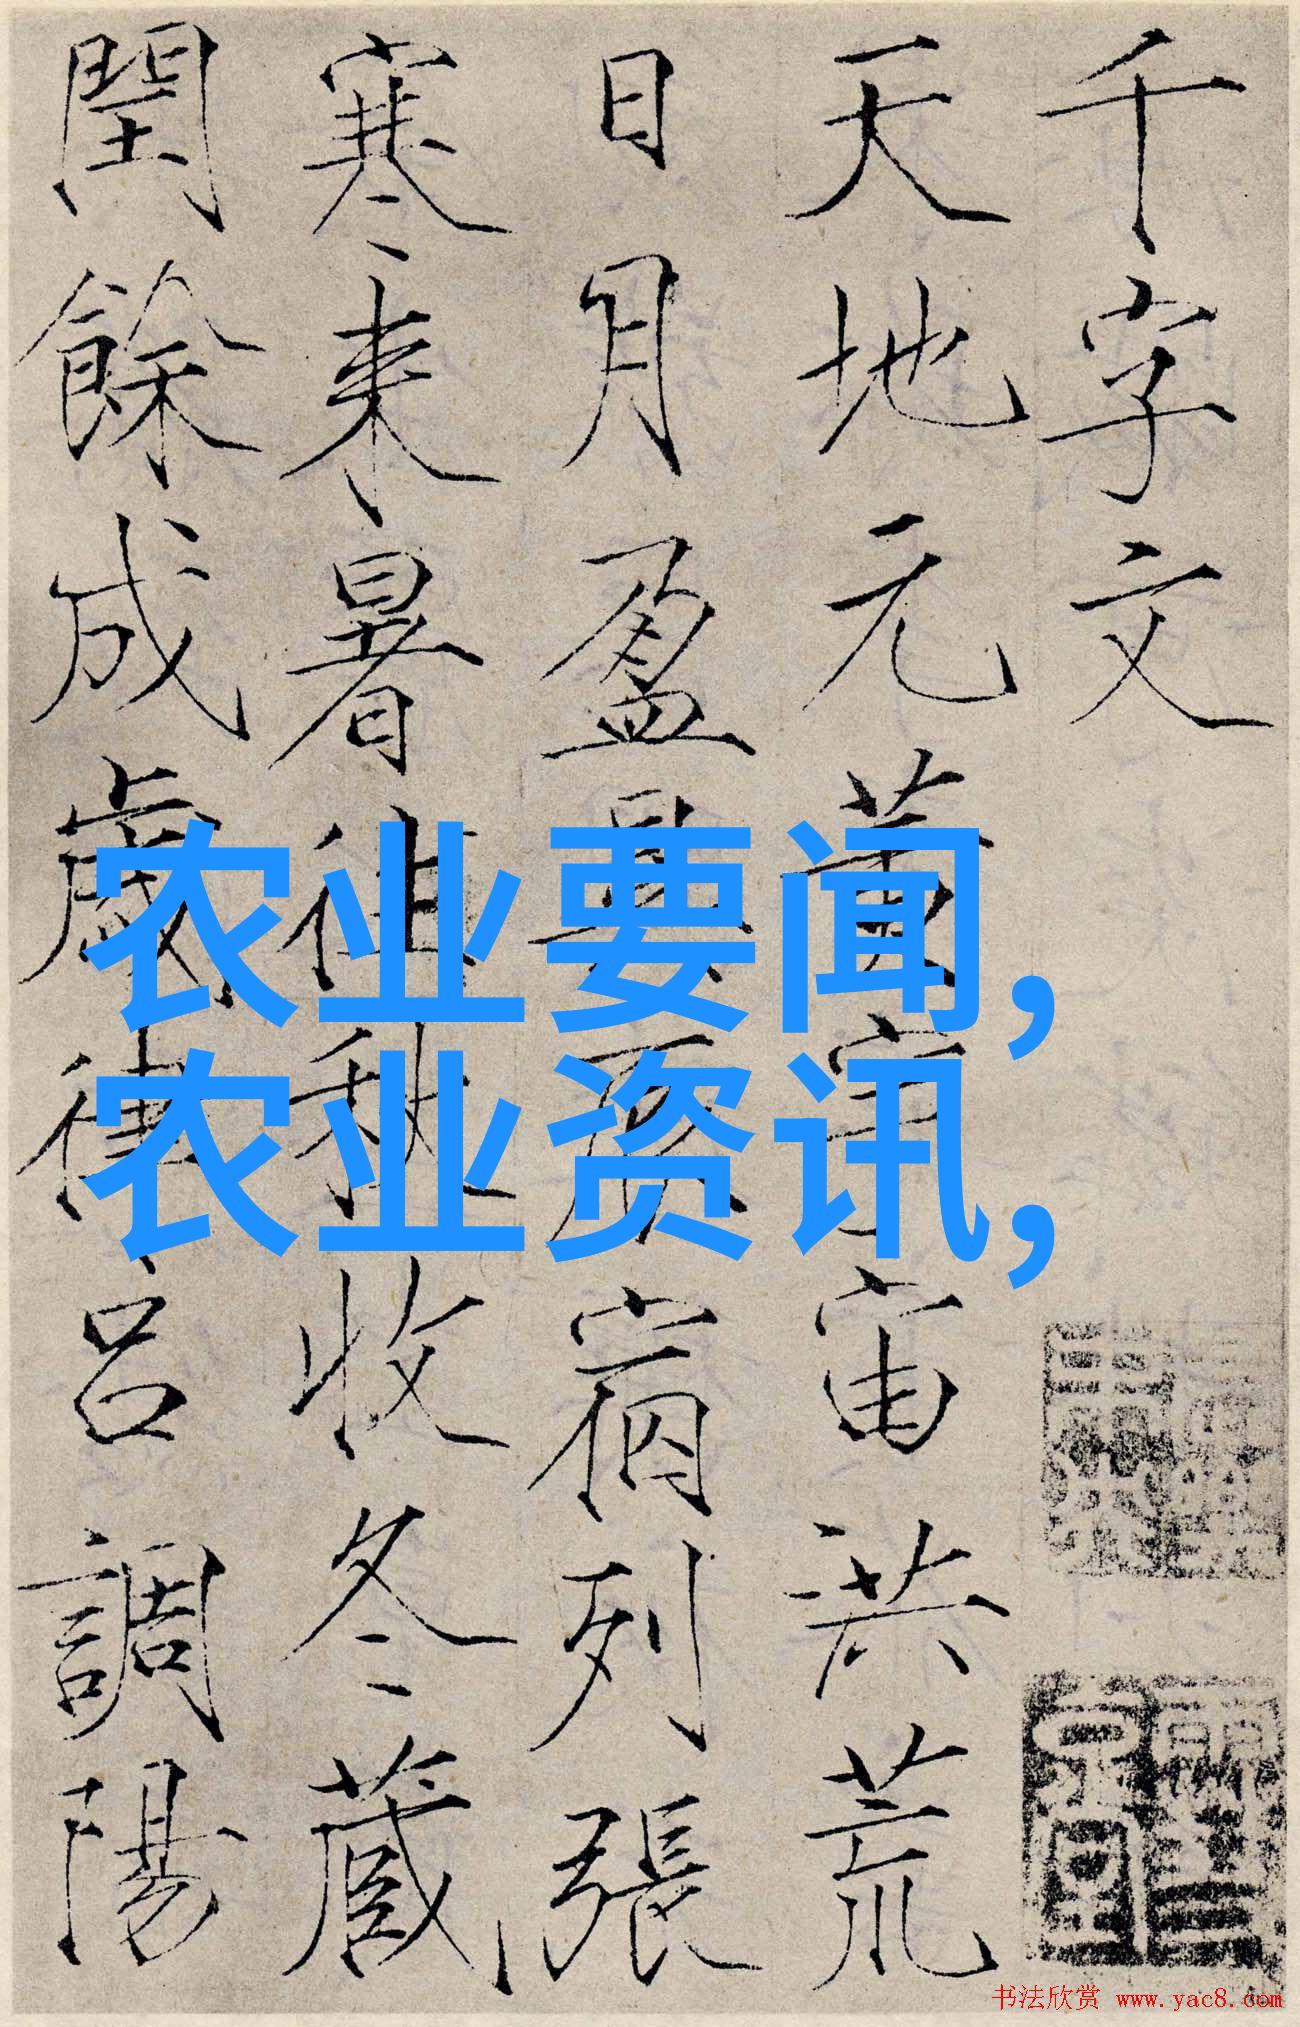 千字文
天地元黄宇宙洪荒
日月盈昃辰宿列張
寒来暑往秋收冬藏
閏餘成歲律吕調陽
农业要闻,
农业资讯,
书法欣赏 www.yac8.com